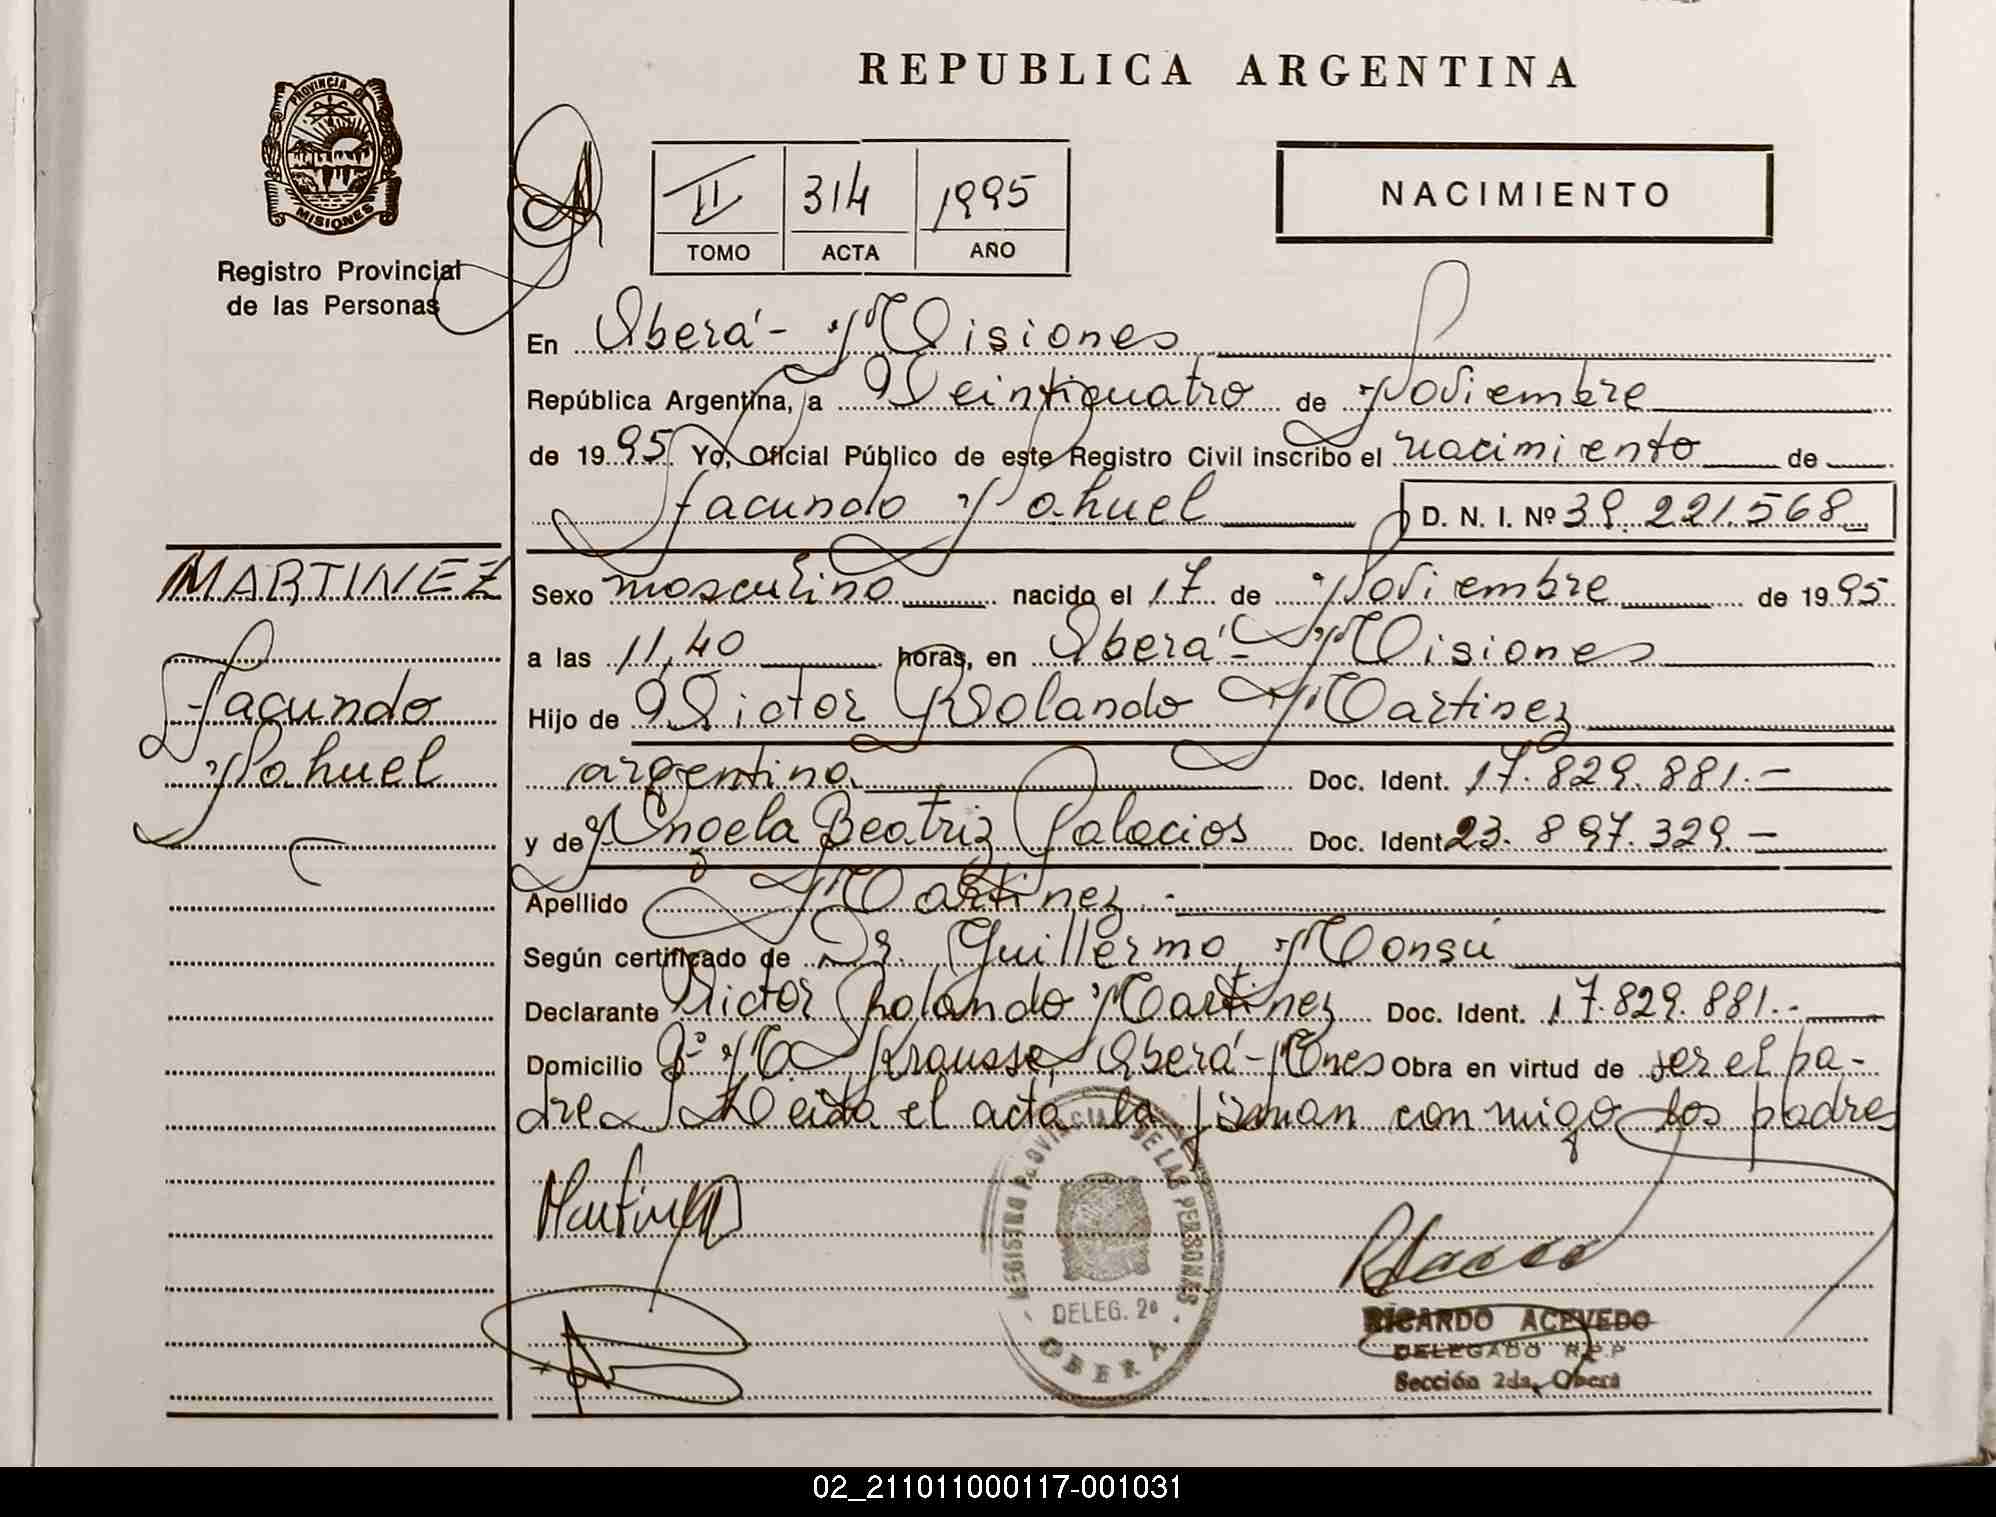 REPUBLICA ARGENTINA
PROVINCIA DE
MISIONES
Registro Provincial
de las Personas
II 314 1995
TOMO ACTA AÑO
NACIMIENTO
En Oberá - Misiones
República Argentina, a Veintiquatro de Noviembre
de 1995 Yo, Oficial Público de este Registro Civil inscribo el nacimiento de
Facundo Nahuel D. N. I. Nº 39.221.568
MARTINEZ
Facundo
Nahuel
Sexo masculino nacido el 17 de Noviembre de 1995
a las 11,40 horas, en Oberá - Misiones
Hijo de Victor Rolando Martinez
argentino Doc. Ident. 17.829.881.-
y de Angela Beatriz Palacios Doc. Ident 23.897.329.-
Apellido Martinez.-
Según certificado de Dr. Guillermo Monsú
Declarante Victor Rolando Martinez Doc. Ident. 17.829.881.-
Domicilio Bº M. Krausse, Oberá - Mnes Obra en virtud de ser el pa-
dre Leida el acta la firman conmigo los padres
Martinez
REGISTRO PROVINCIAL DE LAS PERSONAS
DELEG. 2º
OBERA
RICARDO ACEVEDO
DELEGADO R.P.P
Sección 2da. Oberá
02_211011000117-001031